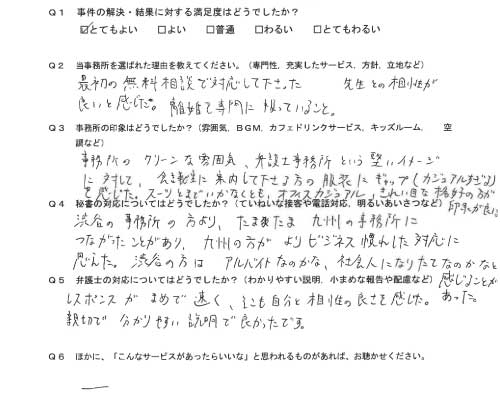 Q1 事件の解決・結果に対する満足度はどうでしたか？
☑とてもよい □よい □普通 □わるい □とてもわるい
Q2 当事務所を選ばれた理由を教えてください。（専門性，充実したサービス，方針，立地など）
最初の無料相談で対応して下さった 先生との相性が
良いと感じた。離婚を専門に扱っていること。
Q3 事務所の印象はどうでしたか？（雰囲気，ＢＧＭ，カフェドリンクサービス，キッズルーム， 空
調など）
事務所のクリーンな雰囲気、弁護士事務所という堅いイメージ
に対して、会議室に案内して下さる方の服装にギャップ（カジュアルすぎる）
を感じた。スーツとまでいかなくとも、オフィスカジュアル、きれい目な格好の方が
印象が良い
Q4 秘書の対応についてはどうでしたか？（ていねいな接客や電話対応，明るいあいさつなど）
渋谷の事務所の方より、たまたま九州の事務所に
つながったことがあり、九州の方がよりビジネス慣れした対応に
感じた。渋谷の方はアルバイトなのかな、社会人になりたてなのかなと
感じることが
あった。
Q5 弁護士の対応についてはどうでしたか？（わかりやすい説明，小まめな報告や配慮など）
レスポンスがまめで速く、そこも自分と相性の良さを感じた。
親切で分かりやすい説明で良かったです。
Q6 ほかに，「こんなサービスがあったらいいな」と思われるものがあれば，お聴かせください。